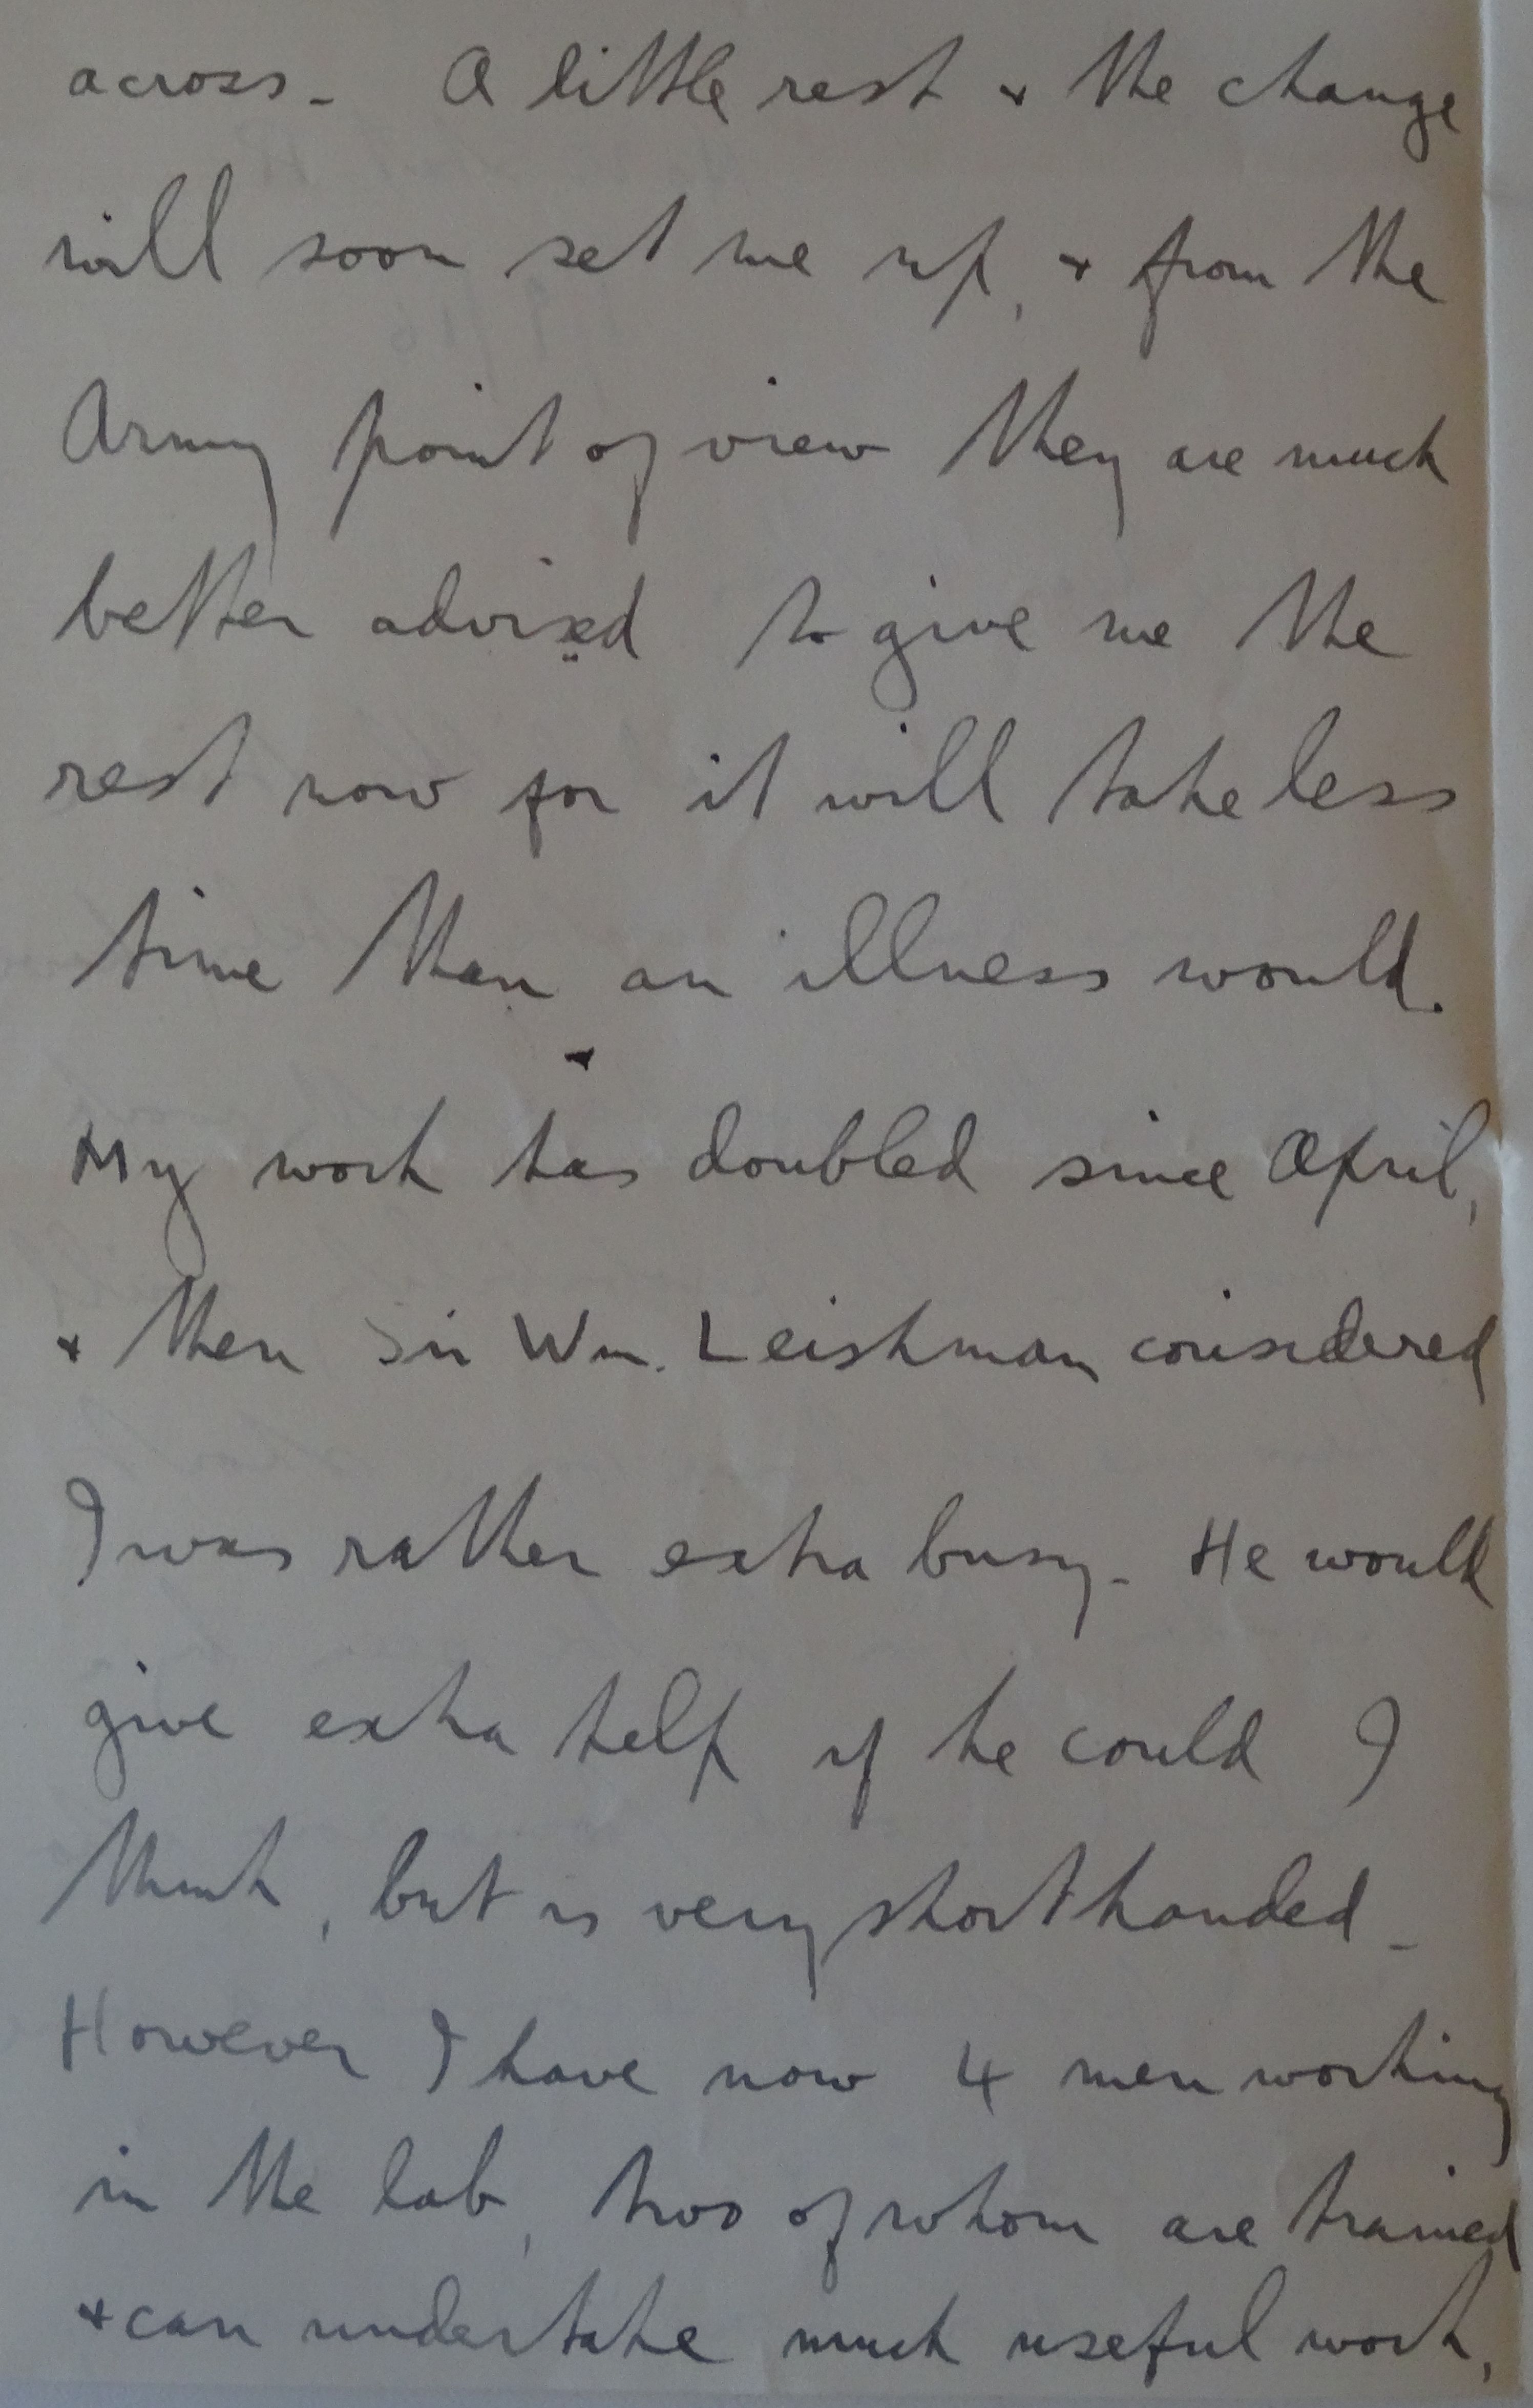 across. A little rest & the change
will soon set me up, & from the
Army point of view they are much
better advised to give me the
rest now for it will take less
time than an illness would.
My work has doubled since April,
& then Sir Wm. Leishman considered
I was rather extra busy. He would
give extra help if he could I
think, but is very short handed.
However I have now 4 men working
in the lab, two of whom are trained
& can undertake much useful work,